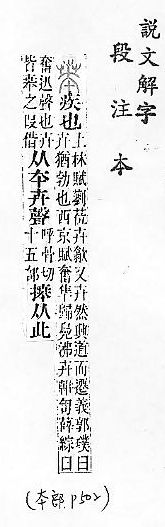 說文解字
段注本
𠦪 疾也 上林賦藰莅卉歙又卉然興道而遷義郭璞曰
卉猶勃也西京賦奮隼歸鳧沸卉軿訇薛綜曰
奮迅聲也卉
皆𠦪之叚借 从夲卉聲 呼骨切
十五部 𢷎从此
(本部 p502)